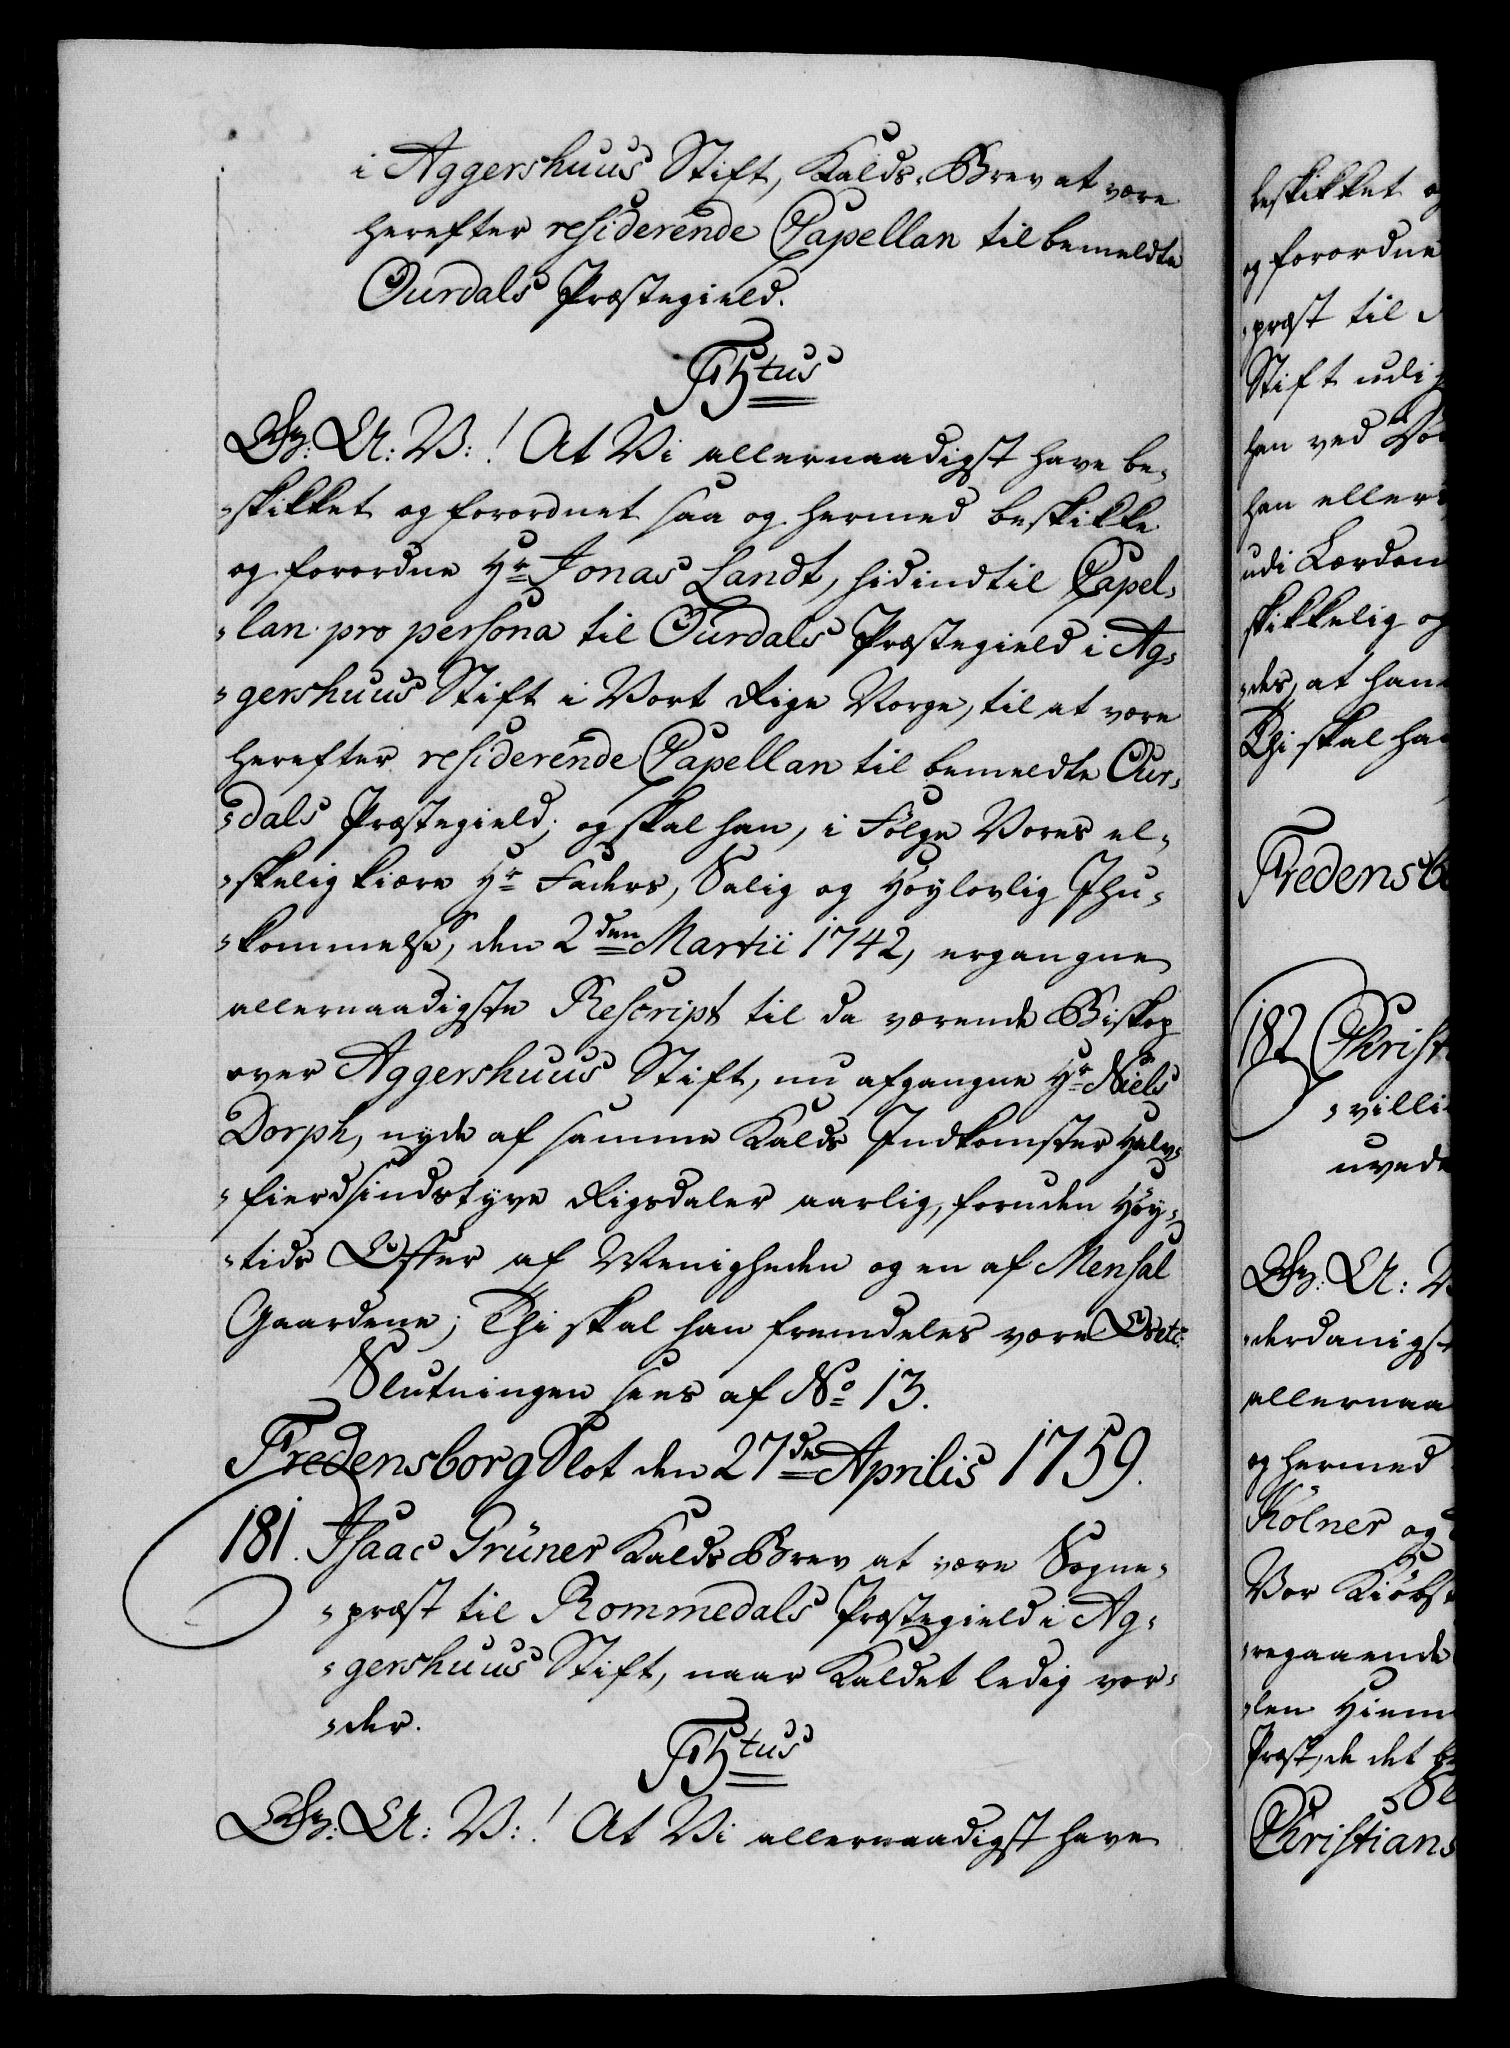 i Aggershuus Stift, Kalds-Brev at være
herefter residerende Capellan til bemeldte
Ourdals Præstegield.
F5tus
Gz: A: V: ! At Vi allernaadigst have be-
-skikket og forordnet saa og hermed beskikke
og forordne Hr Jonas Landt, hidindtil Capel-
-lan pro persona til Ourdals Præstegield i Ag-
-gershuus Stift i Vort Rige Norge, til at være
herefter residerende Capellan til bemeldte Our-
-dals Præstegield; og skal han, i Følge Vores el-
-skelig kiære Hr Faders, Salig og Høylovlig Ihu-
-kommelse, den 2den Martii 1742, ergangne
allernaadigste Rescript til da værende Biskop
over Aggershuus Stift, nu afgangne Hr Niels
Dorph, nyde af samme Kalds Indkomster Halv-
-fierdsindstyve Rigsdaler aarlig, foruden Høy-
-tids Offer af Menigheden og en af Mensal
Gaardene; Thi skal han fremdeles være &c etc:
Slutningen sees af No 13.
Fredensborg Slot den 27de Aprilis 1759.
181. Isaac Grüner Kalds Brev at være Sogne-
-præst til Rommedals Præstegield i Ag-
-gershuus Stift, naar Kaldet ledig vor-
-der.
F5tus
Gz: A: V: ! At Vi allernaadigst have
beskikket og
og forordne
-præst til
Stift udi
han ved
han ellers
udi Lærdom
skikkelig og
-des, at han
Thi skal han
Fredensbo
182 Christ
-villi
uved
Gz: A: V
-derdanigst
allernaa
og hermed
Kölner og
Vor Kiøbst
-regaaende
-len Hiem
Præst, de det
Sl
Christians